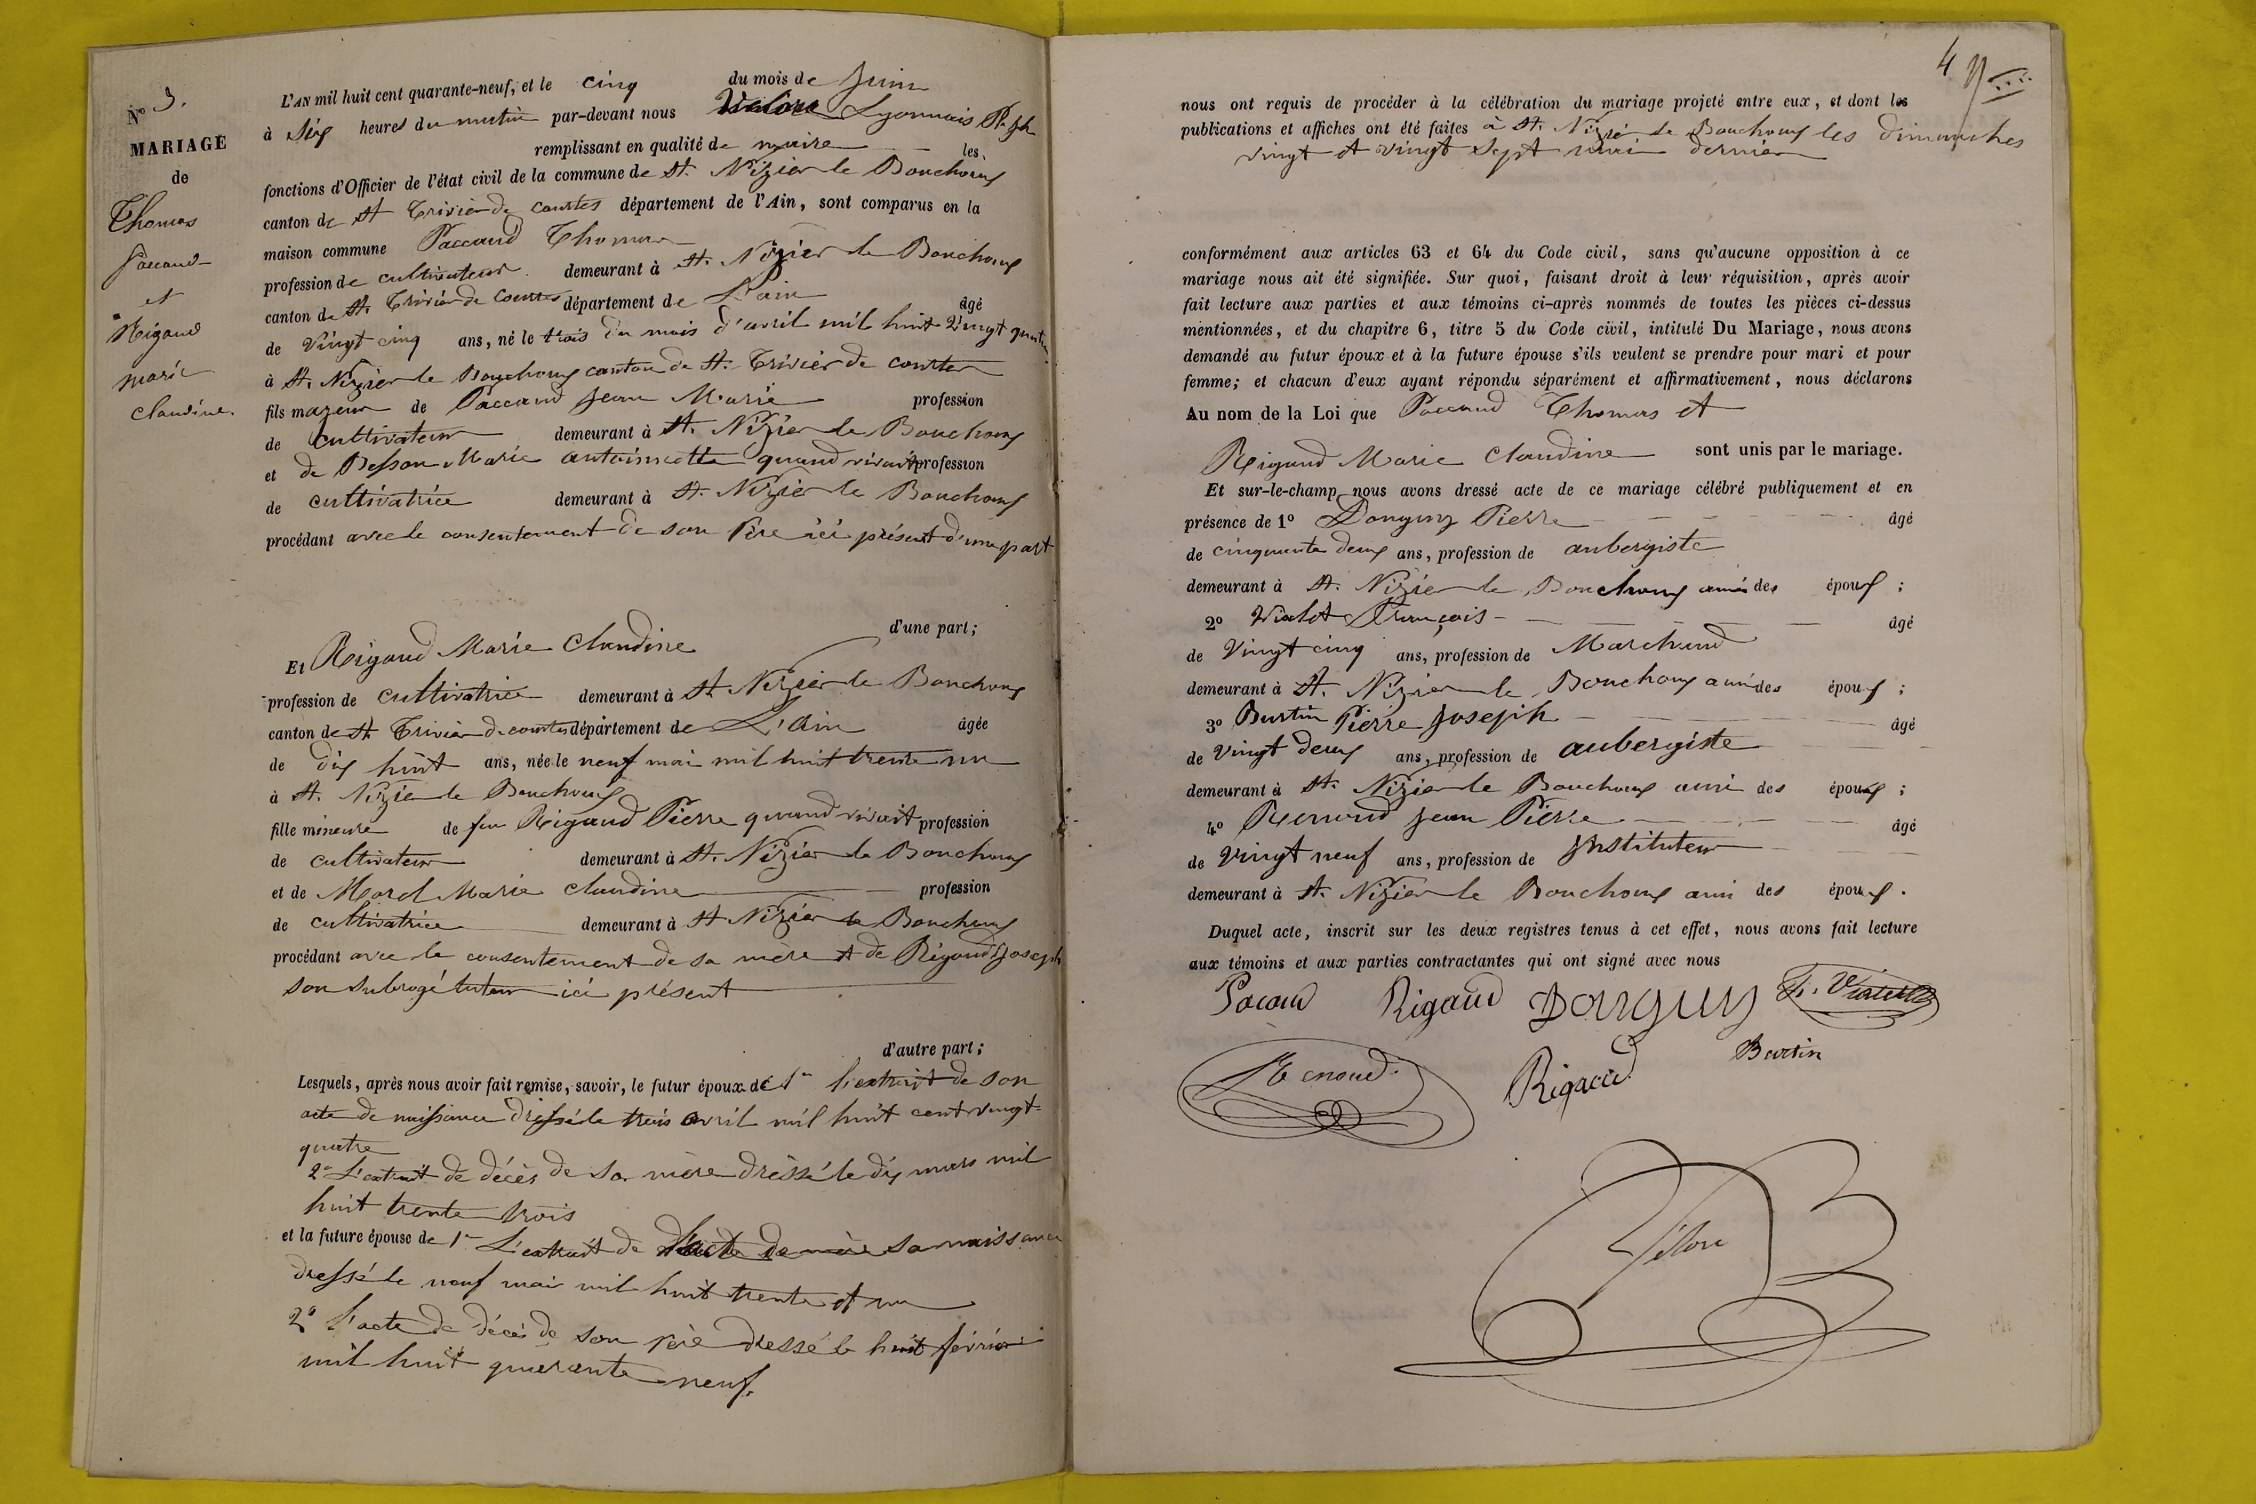 N° 3.
MARIAGE
de
Thomas
Paccaud
et
Rigaud
marie
claudine.
L'AN mil huit cent quarante-neuf, et le cinq du mois de Juin
à Six heures du matin par-devant nous Lyonnais
remplissant en qualité de maire les
fonctions d'Officier de l'état civil de la commune de St. Nizier le Bouchoux
canton de St Trivier de courtes département de l'Ain, sont comparus en la
maison commune Paccaud Thomas
profession de cultivateur demeurant à St. Nizier le Bouchoux
canton de St. Trivier de Courtes département de L'ain âgé
de Vingt cinq ans, né le trois du mois d'avril mil huit Vingt quatre
à St. Nizier le Bouchoux canton de St. Trivier de courtes
fils majeur de Paccaud Jean Marie profession
de cultivateur demeurant à St. Nizier le Bouchoux
et de Besson Marie antoinette quand vivait profession
de cultivatrice demeurant à St. Nizier le Bouchoux
procédant avec le consentement de son Père ici présent d'une part
d'une part;
Et Rigaud Marie Claudine
profession de cultivatrice demeurant à St Nizier le Bouchoux
canton de St Trivier de courtes département de L'Ain âgée
de dix huit ans, née le neuf mai mil huit trente un
à St. Nizier le Bouchoux
fille mineure de feu Rigaud Pierre quand vivait profession
de cultivateur demeurant à St. Nizier le Bouchoux
et de Morel Marie claudine profession
de cultivatrice demeurant à St Nizier le Bouchoux
procédant avec le consentement de sa mère et de Rigaud Joseph
son subrogé tuteur ici présent
d'autre part;
Lesquels, après nous avoir fait remise, savoir, le futur époux de 1° l'extrait de son
acte de naissance dressé le trois avril mil huit cent vingt-
quatre
2° L'extrait de décès de sa mère dressé le dix mars mil
huit trente trois
et la future épouse de 1° L'extrait de l'acte de sa naissance
dressé le neuf mai mil huit trente et un
2° l'acte de décès de son père dressé le huit février
mil huit quarante neuf.
4
nous ont requis de procéder à la célébration du mariage projeté entre eux, et dont les
publications et affiches ont été faites à St. Nizié le Bouchoux les dimanches
vingt et vingt sept mai dernier
conformément aux articles 63 et 64 du Code civil, sans qu'aucune opposition à ce
mariage nous ait été signifiée. Sur quoi, faisant droit à leur réquisition, après avoir
fait lecture aux parties et aux témoins ci-après nommés de toutes les pièces ci-dessus
mentionnées, et du chapitre 6, titre 5 du Code civil, intitulé Du Mariage, nous avons
demandé au futur époux et à la future épouse s'ils veulent se prendre pour mari et pour
femme; et chacun d'eux ayant répondu séparément et affirmativement, nous déclarons
Au nom de la Loi que Paccaud Thomas et
Rigaud Marie Claudine sont unis par le mariage.
Et sur-le-champ nous avons dressé acte de ce mariage célébré publiquement et en
présence de 1° Donguy Pierre âgé
de cinquante deux ans, profession de aubergiste
demeurant à St. Nizier le Bouchoux ami des époux ;
2° Vialet François âgé
de Vingt cinq ans, profession de Marchand
demeurant à St. Nizier le Bouchoux ami des époux ;
3° Burtin Pierre Joseph âgé
de vingt deux ans, profession de aubergiste
demeurant à St. Nizier le Bouchoux ami des époux ;
4° Renoud Jean Pierre âgé
de Vingt neuf ans, profession de Instituteur
demeurant à St. Nizier le Bouchoux ami des époux.
Duquel acte, inscrit sur les deux registres tenus à cet effet, nous avons fait lecture
aux témoins et aux parties contractantes qui ont signé avec nous
Pacaud Rigaud Donguy F. Vialet
Renoud Rigaud Burtin